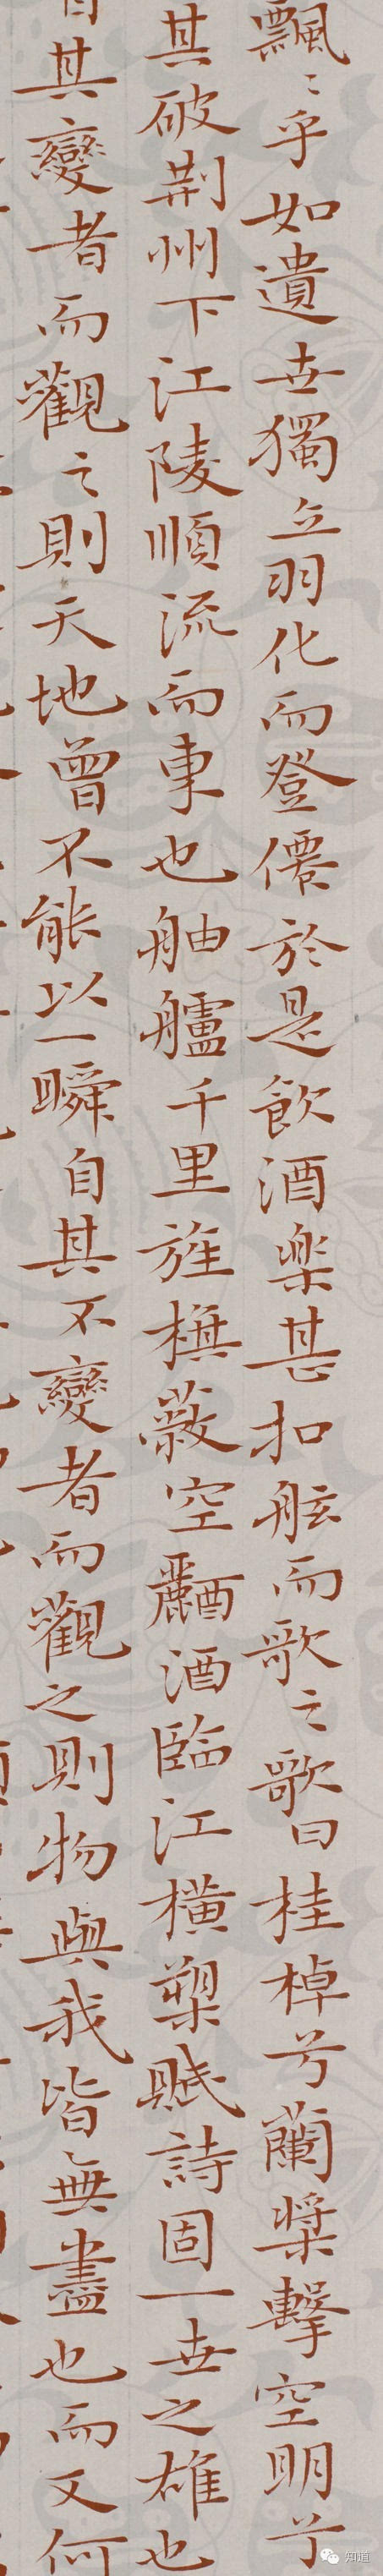 飄〻乎如遺世獨立羽化而登僊於是飲酒樂甚扣舷而歌之歌曰桂棹兮蘭槳擊空明兮
其破荆州下江陵順流而東也舳艫千里旌橅蔽空釃酒臨江橫槊賦詩固一世之雄也
自其變者而觀之則天地曾不能以一瞬自其不變者而觀之則物與我皆無盡也而又何
知道